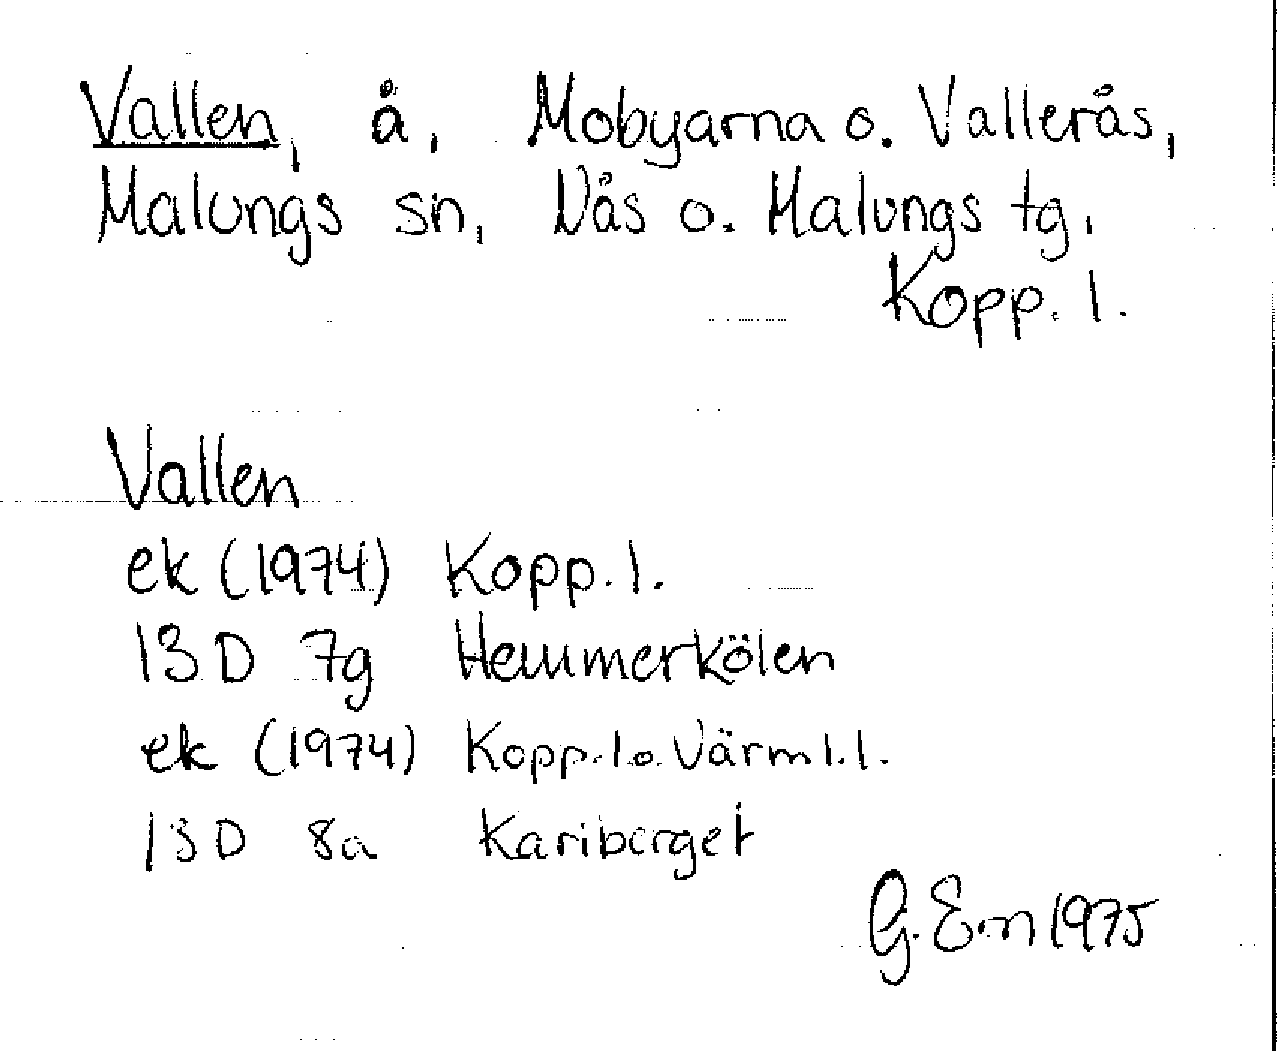 Vallen, å, Mobyarna o. Vallerås,
Malungs sn, Nås o. Malungs tg,
Kopp. l.
Vallen
ek (1974) Kopp. l.
13 D 7g Hemmerkölen
ek (1974) Kopp. l o. Värml. l.
13 D 8a Kariberget
G. Em 1975